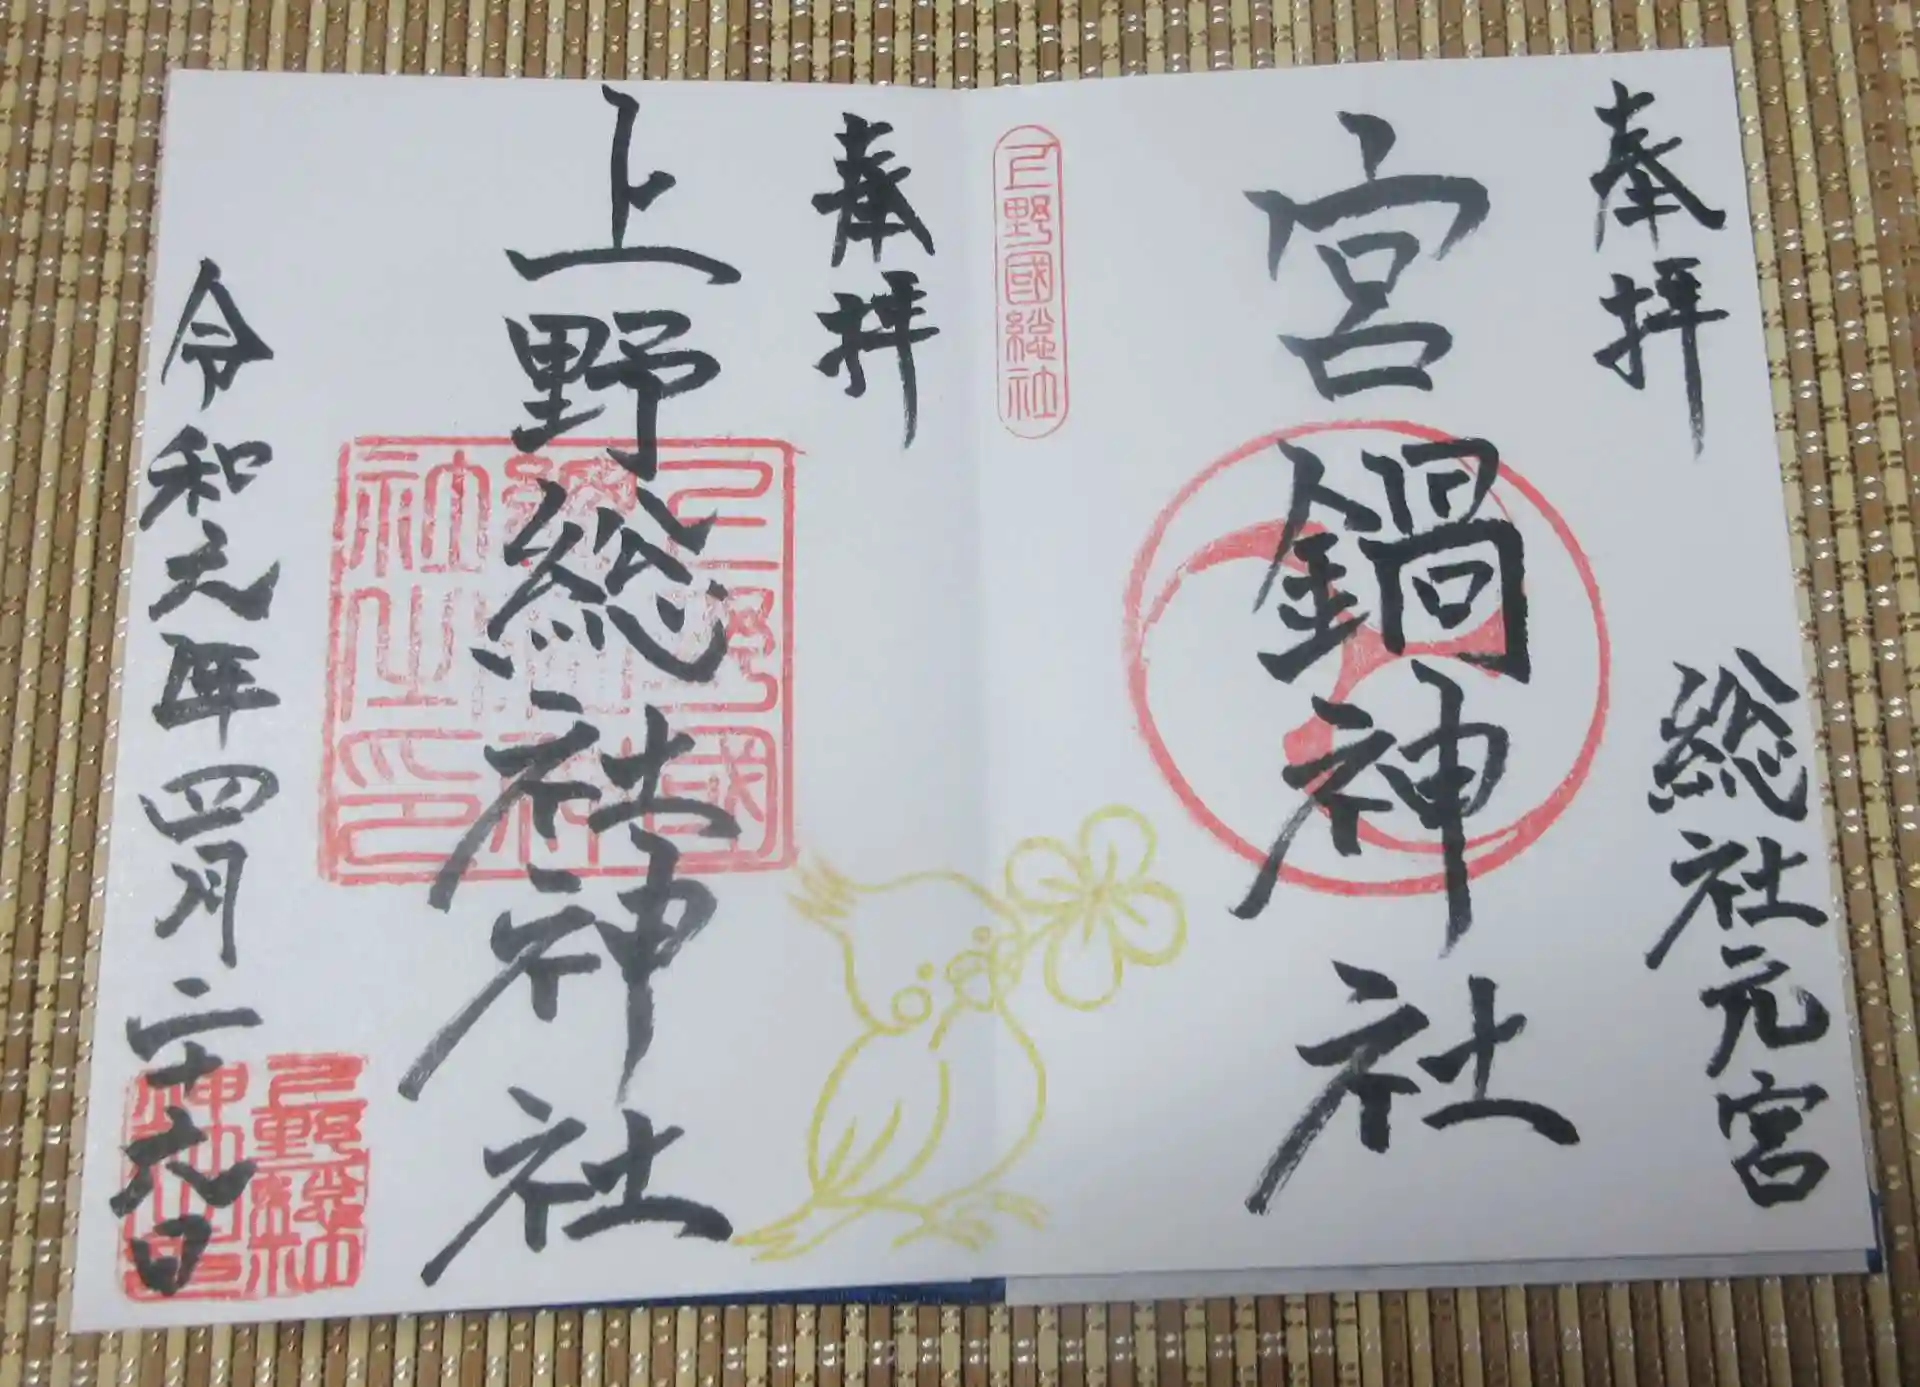 奉拝
総社元宮
宮鍋神社
上野國総社
奉拝
上野総社神社
上野國総社神社之印
令和元年四月二十九日
上野総社神社之印